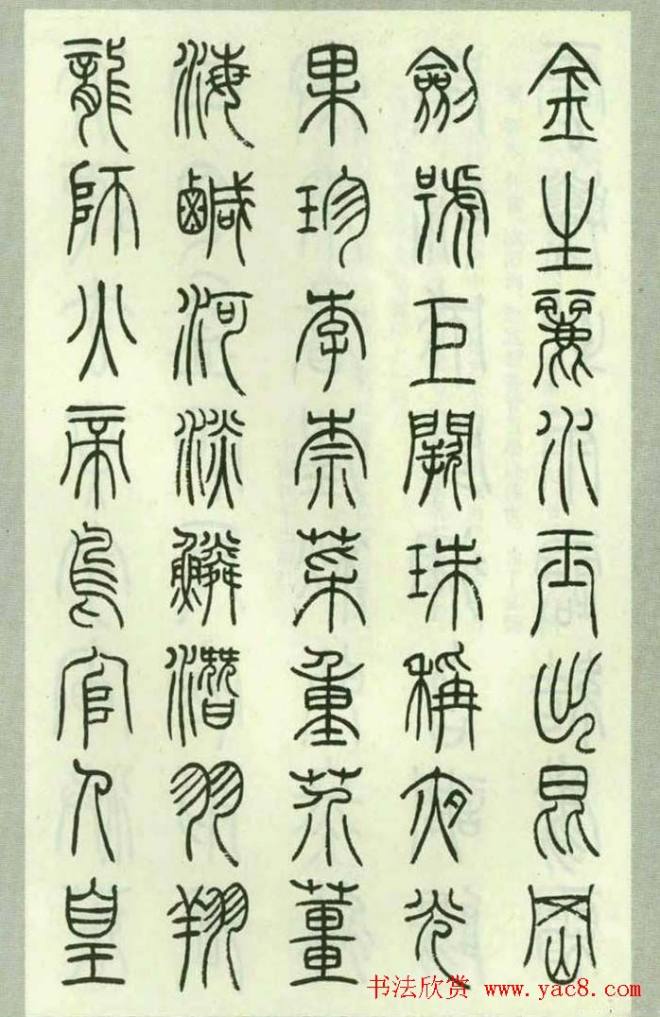 金生麗水玉出昆岡
劍號巨闕珠稱夜光
果珍李柰菜重芥薑
海鹹河淡鱗潛羽翔
龍師火帝鳥官人皇
书法欣赏 www.yac8.com